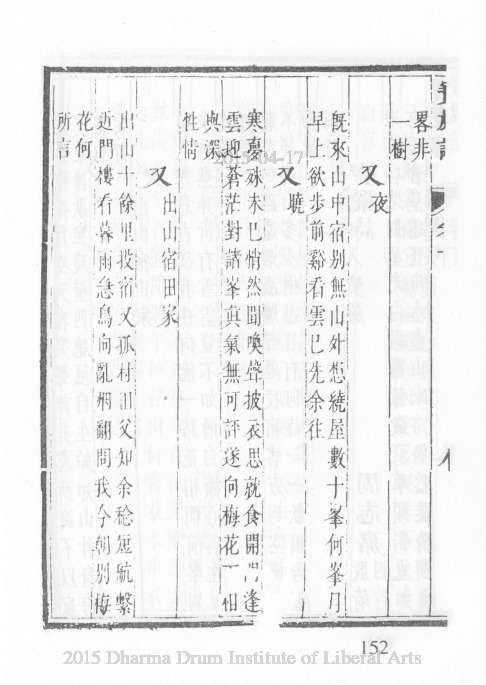 畧非
一樹
又夜
既來山中宿別無山外想繞屋數十峯何峯月
早上欲步前谿看雲已先余往
又曉
寒裛殊未已悄然聞喚聲披衣思就食開門逢
雲迎蒼茫對諸峯真氣無可評遂向梅花下相
與深
性情
又出山宿田家
出山十餘里投宿入孤村田父知余稔短航繫
近門樓看暮雨急鳥向亂烟翻問我今朝別梅
花何
所言
2015-04-17
152
2015 Dharma Drum Institute of Liberal Arts